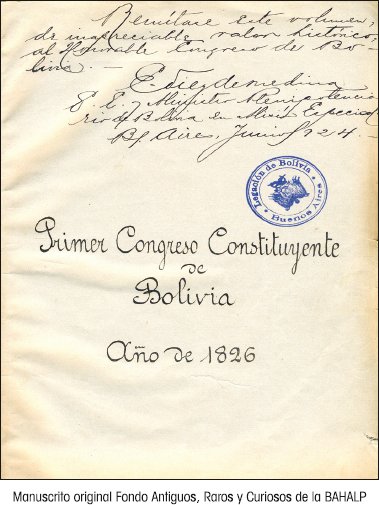 Remítase este volumen,
de inapreciable valor histórico,
al Honorable Congreso de Bo-
livia. —
E. Diez de Medina
E. E. y Ministro Plenipotencia
rio de Bolivia en Misión Especial
Bs Aires, Junio 924.
Legación de Bolivia
Buenos Aires
Primer Congreso Constituyente
de
Bolivia
Año de 1826
Manuscrito original Fondo Antiguos, Raros y Curiosos de la BAHALP